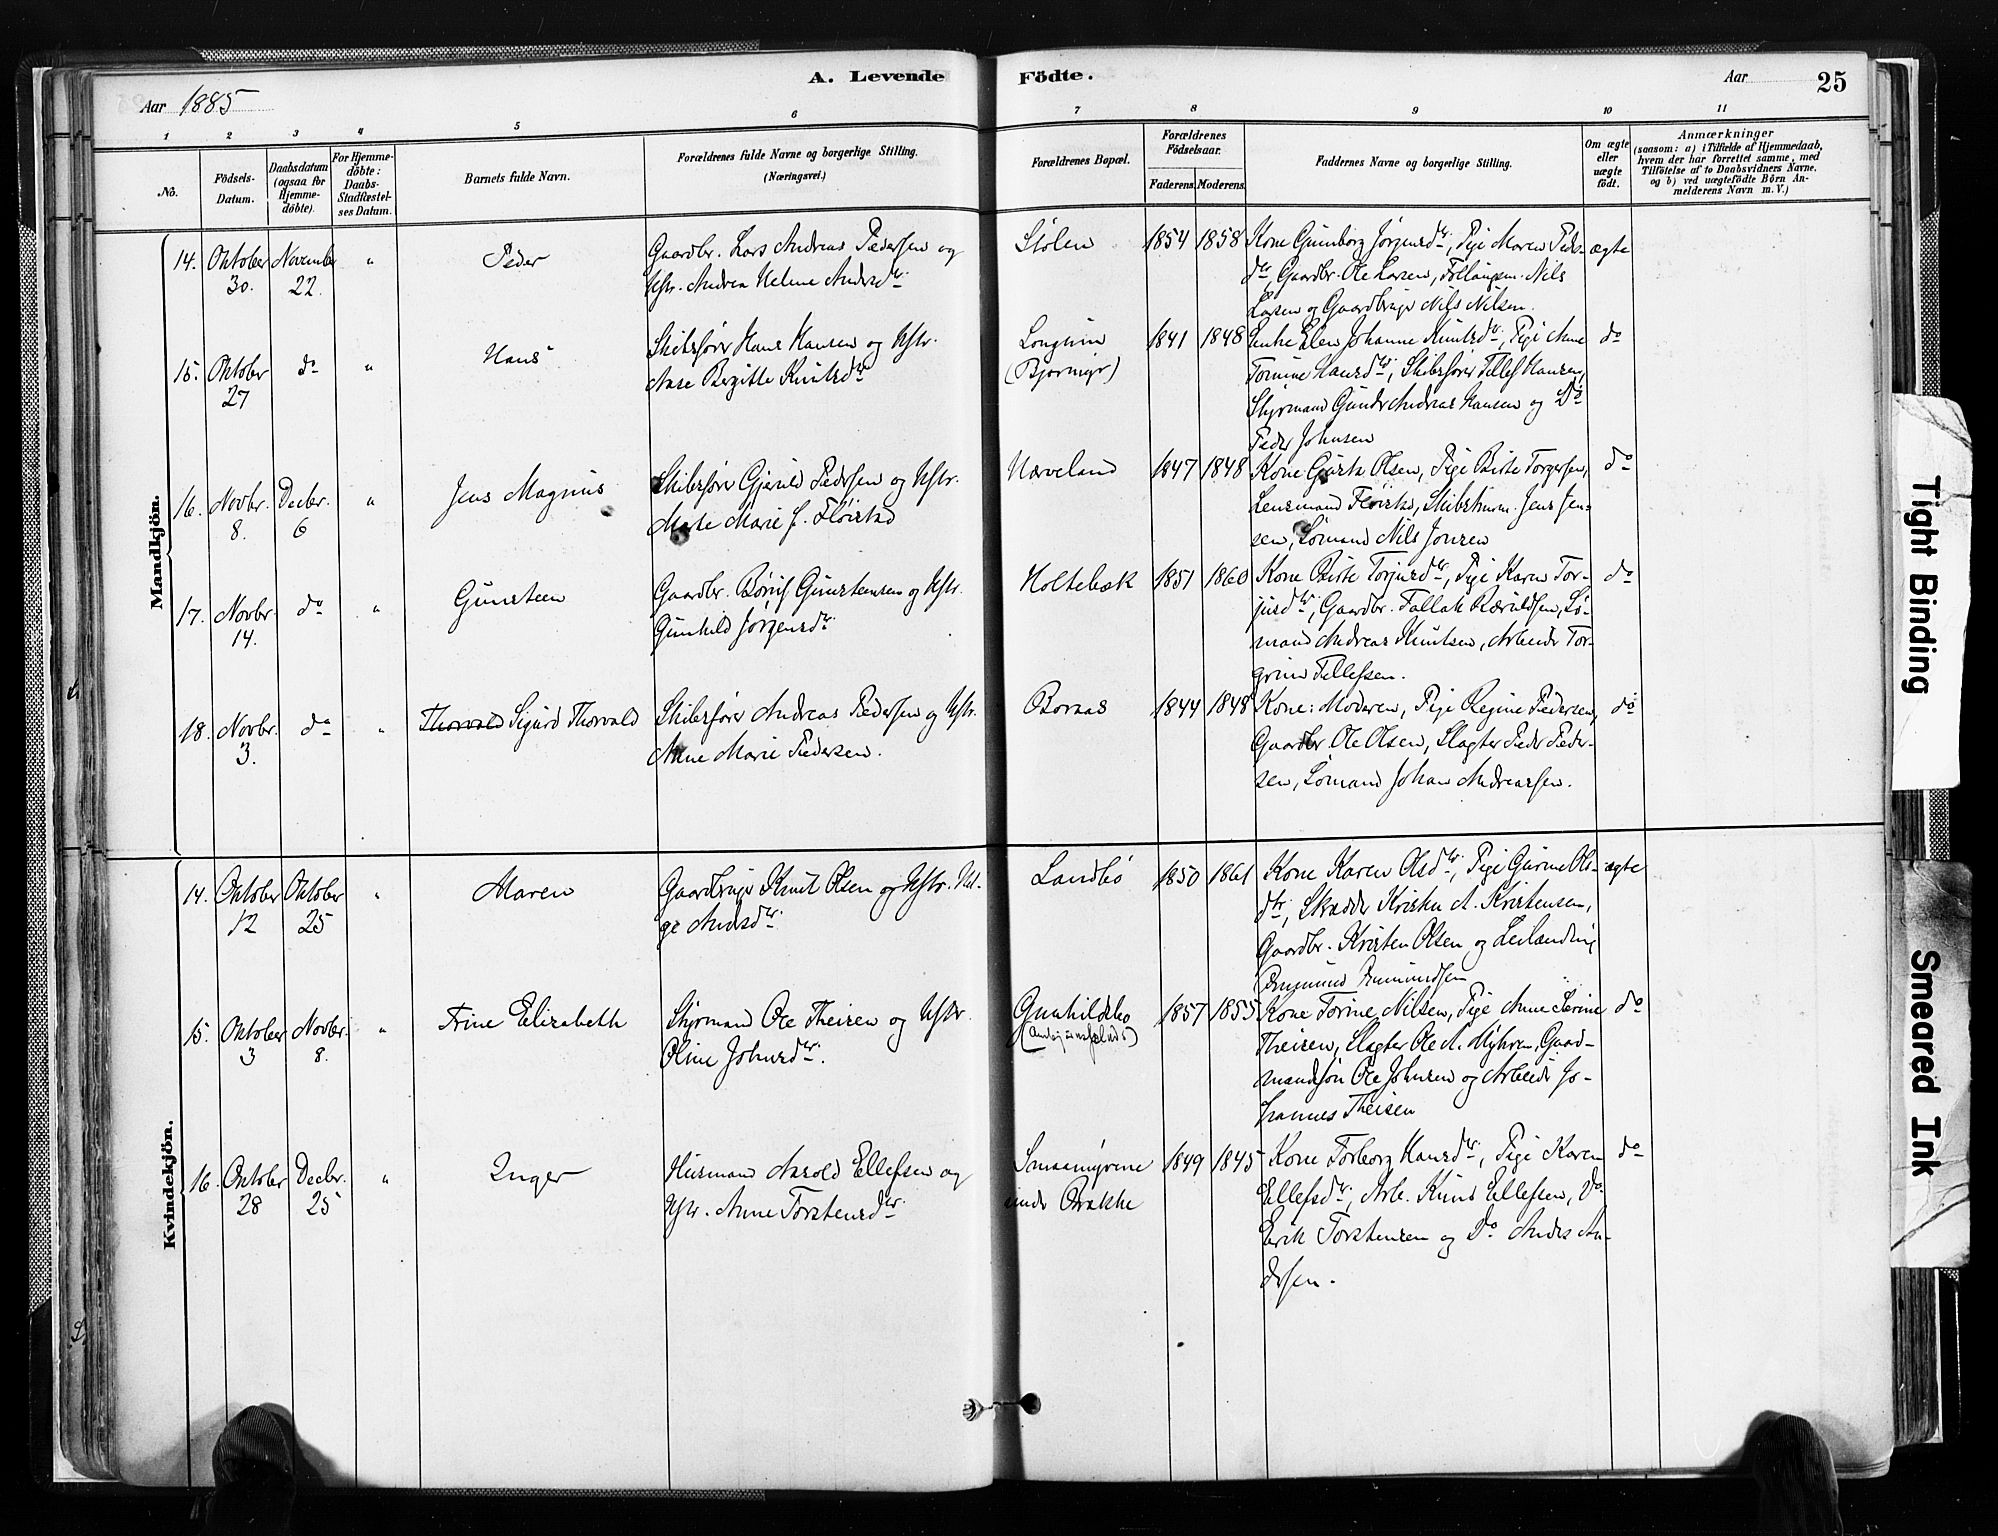 A. Levende Födte.
Aar 1885
Aar
25
1 2 3 4 5 6 7 8 9 10 11
No.
Födsels-Datum.
Daabsdatum (ogsaa för Hjemme-döbte).
For Hjemme-döbte: Daabs-Stadfæstel-ses Datum.
Barnets fulde Navn.
Forældrenes fulde Navne og borgerlige Stilling.
(Næringsvei.)
Forældrenes Bopæl.
Forældrenes Födselsaar.
Faderens. Moderens.
Faddernes Navne og borgerlige Stilling.
Om ægte eller uægte födt.
Anmærkninger
(saasom: a) i Tilfælde af Hjemmedaab,
hvem der har forrettet samme, med
Tilföielse af to Daabsvidners Navne,
og b) ved uægtefödte Börn An-
melderens Navn m. V.)
Mandkjön.
14. Oktober 30. November 22. " Peder
Gaardbr. Lars Andreas Pedersen og
Hstr. Andrea Helene Andersdtr.
Stølen 1854 1858
Kone Gunborg Jørgensdtr., Pige Maren Peds-
dtr., Gaardbr. Ole Larsen, Nils
Larsen og Gaardbruger Nils Nilsen.
ægte
15. Oktober 27 do " Hans
Skibsfører Hans Hansen og Hstr.
Anne Bergitte Knutsdtr.
Longum
(Bjørmyr) 1841 1848
Enke Elen Johanne Knutsdtr., Pige Anne
Tomine Hansdtr., Skibsfører Tellef Hansen,
Styrmand Gunder Andreas Hansen og Do
Peder Johnsen
do
16. Novbr. 8. Decbr. 6 " Jens Magnus
Skibsfører Gjeruld Pedersen og Hstr.
Marte Marie J. Fløistad
Næveland 1847 1848
Kone Olsen, Pige Birte Torgersen,
Lensmand Fløistad, Skibstøm. Jens Jen-
sen, Sømand Nils Jonsen
do
17. Novbr. 14. do " Gunsteen
Gaardbr. Børuf Gunsteensen og Hstr.
Gunhild Jørgensdtr.
Holtebæk 1851 1860
Kone Birte Torjusdtr., Pige Karen Tor-
jusdtr., Gaardbr. Tallak Ræruldsen, Sø-
mand Andreas Knutsen, Arbeider Tor-
grim Tellefsen.
do
18. Novbr. 3. do " Thorvald Sigurd Thorvald
Skibsfører Andreas Pedersen og Hstr.
Anne Marie Pedersen.
Boraas 1844 1848
Kone: Moderen, Pige Regine Pedersen,
Gaardbr. Ole Olsen, Slagter Peder Peder-
sen, Sømand Johan Andreassen.
do
Kvindekjön.
14. Oktober 12 Oktober 25 " Maren
Gaardbruger Knut Olsen og Hstr. Hel-
ge Andersdtr.
Landbø 1850 1861
Kone Karen Olsdtr., Pige Gurine Ols-
dtr., Skrædder Kristen A. Kristensen,
Gaardbr. Kristen Olsen og Leilænding
ægte
15. Oktober 3 Novbr. 8. " Trine Elizabeth
Styrmand Ole Theisen og Hstr.
Oline Johnsdtr.
Gunhildsbo
1857 1855
Kone Torine Nilsen, Pige Anne Serine
Theisen, Slagter Ole A. Myhren, Gaard-
mandssøn Ole Johnsen og Arbeider Jo-
hannes Theisen
do
16. Oktober 28 Decbr. 25 " Inger
Husmand Aasold Ellefsen og
Hstr. Anne Torstensdtr.
Smaamyrene
under Brække 1849 1845
Kone Torborg Hansdtr., Pige Karen
Ellefsdtr., Arb. Knud Ellefsen, Do.
Erik Torstensen og Do Anders An-
dersen.
do
Tight Binding
Smeared Ink